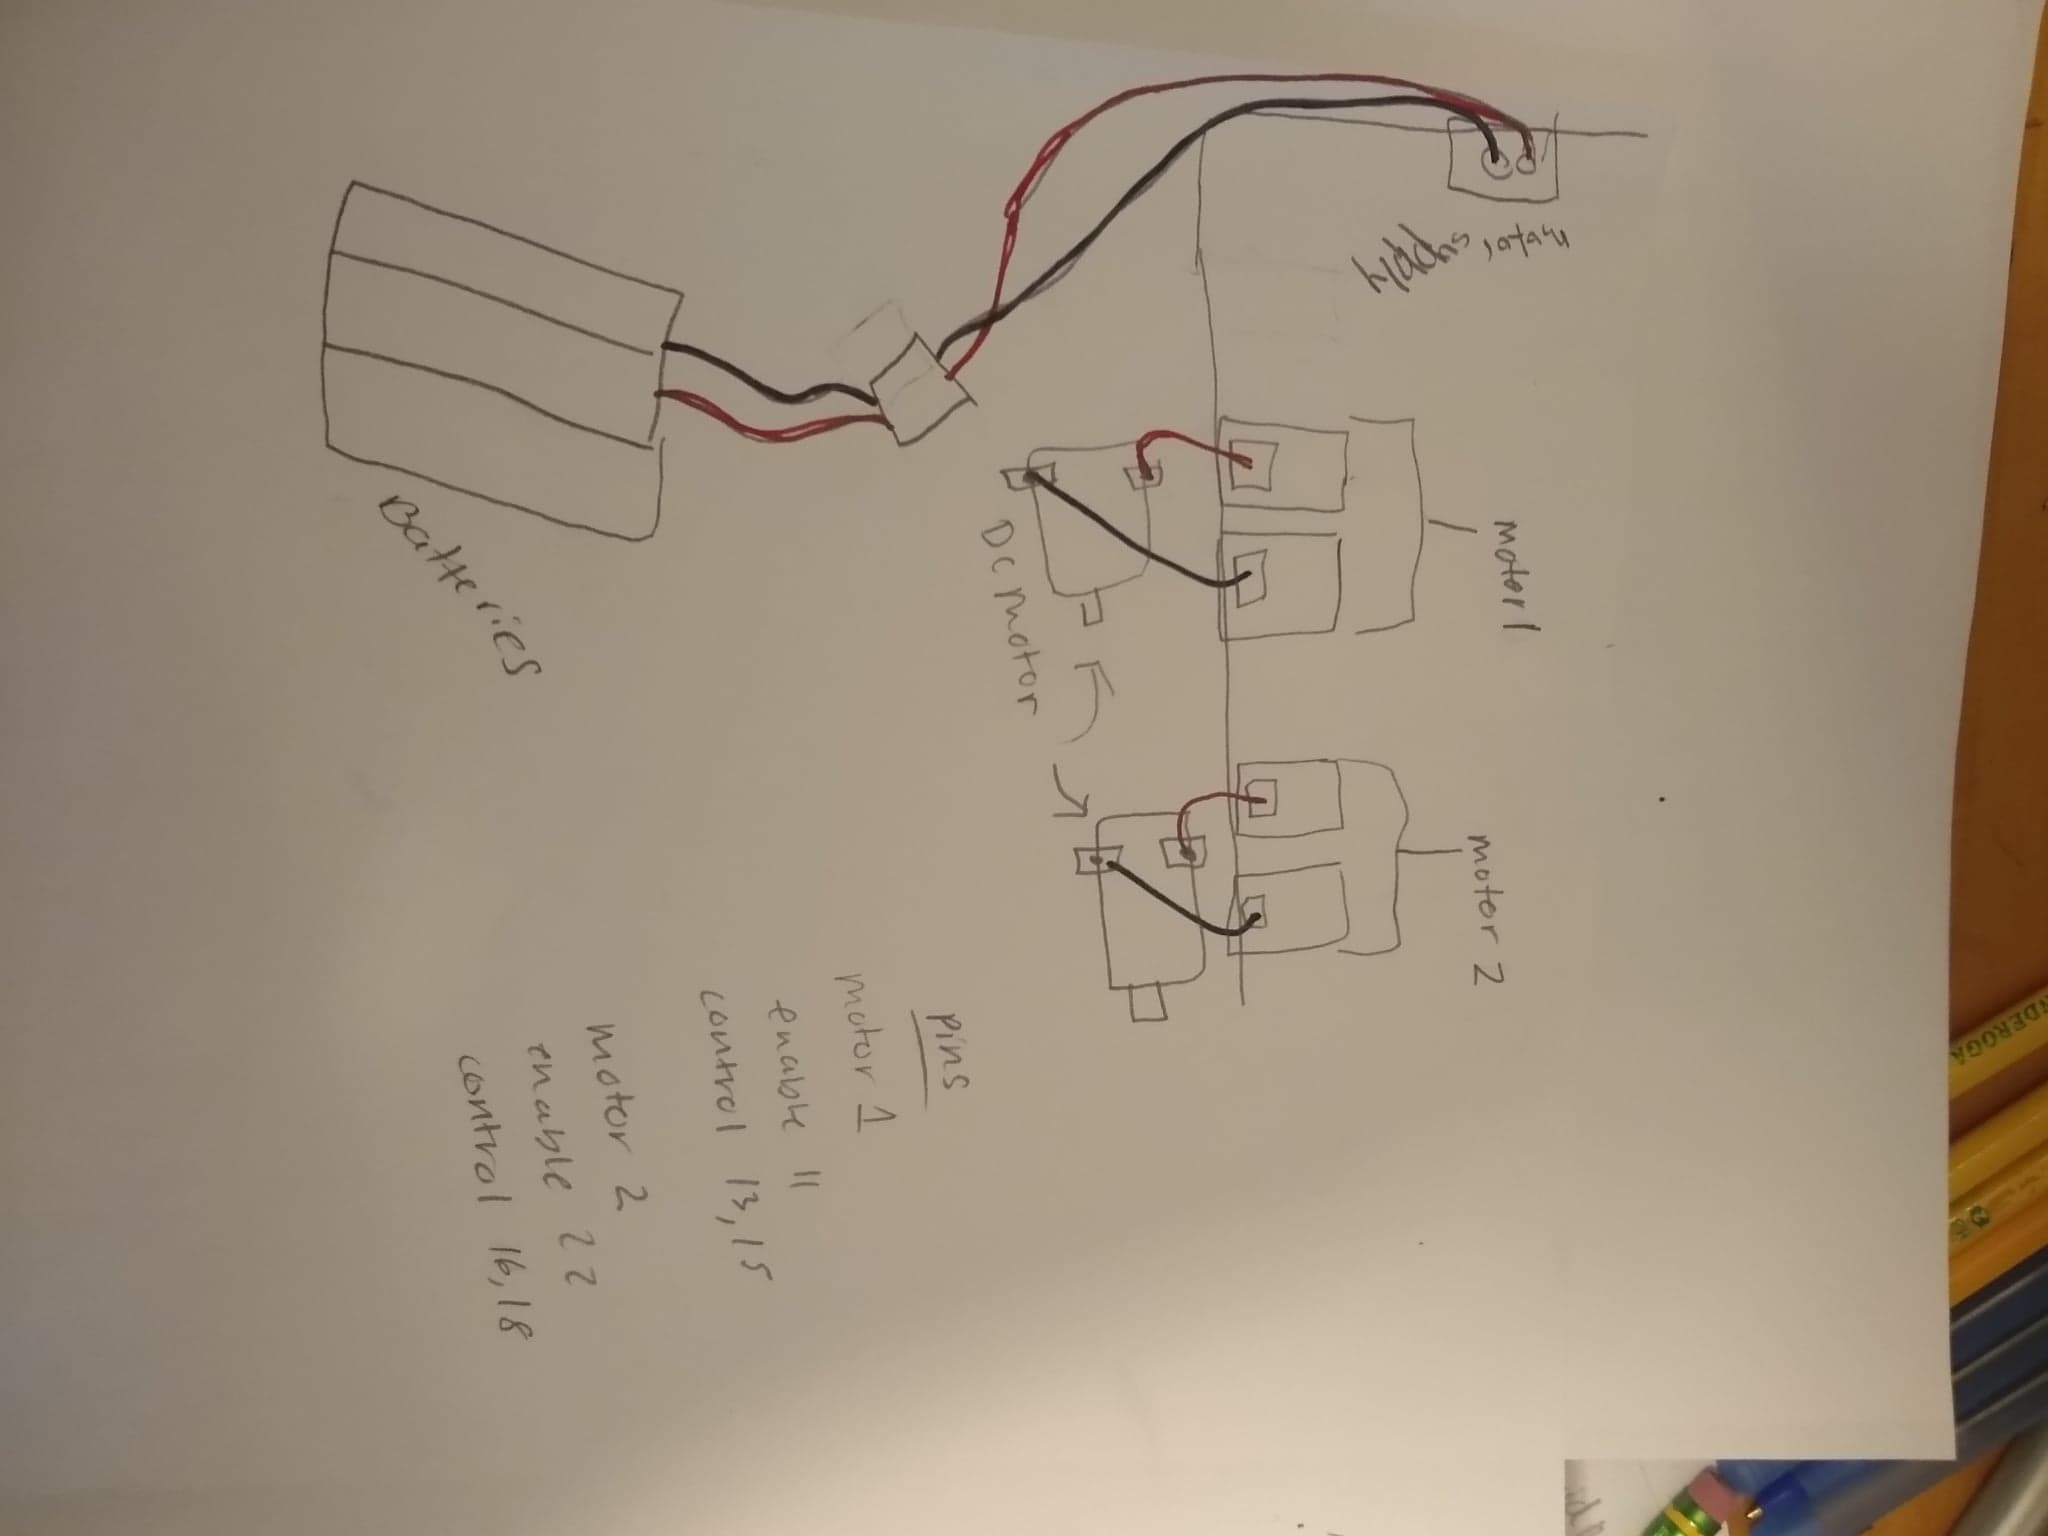 motor supply
motor 1
motor 2
DC motor
Batteries
Pins
motor 1
enable 11
control 13,15
motor 2
enable 22
control 16,18